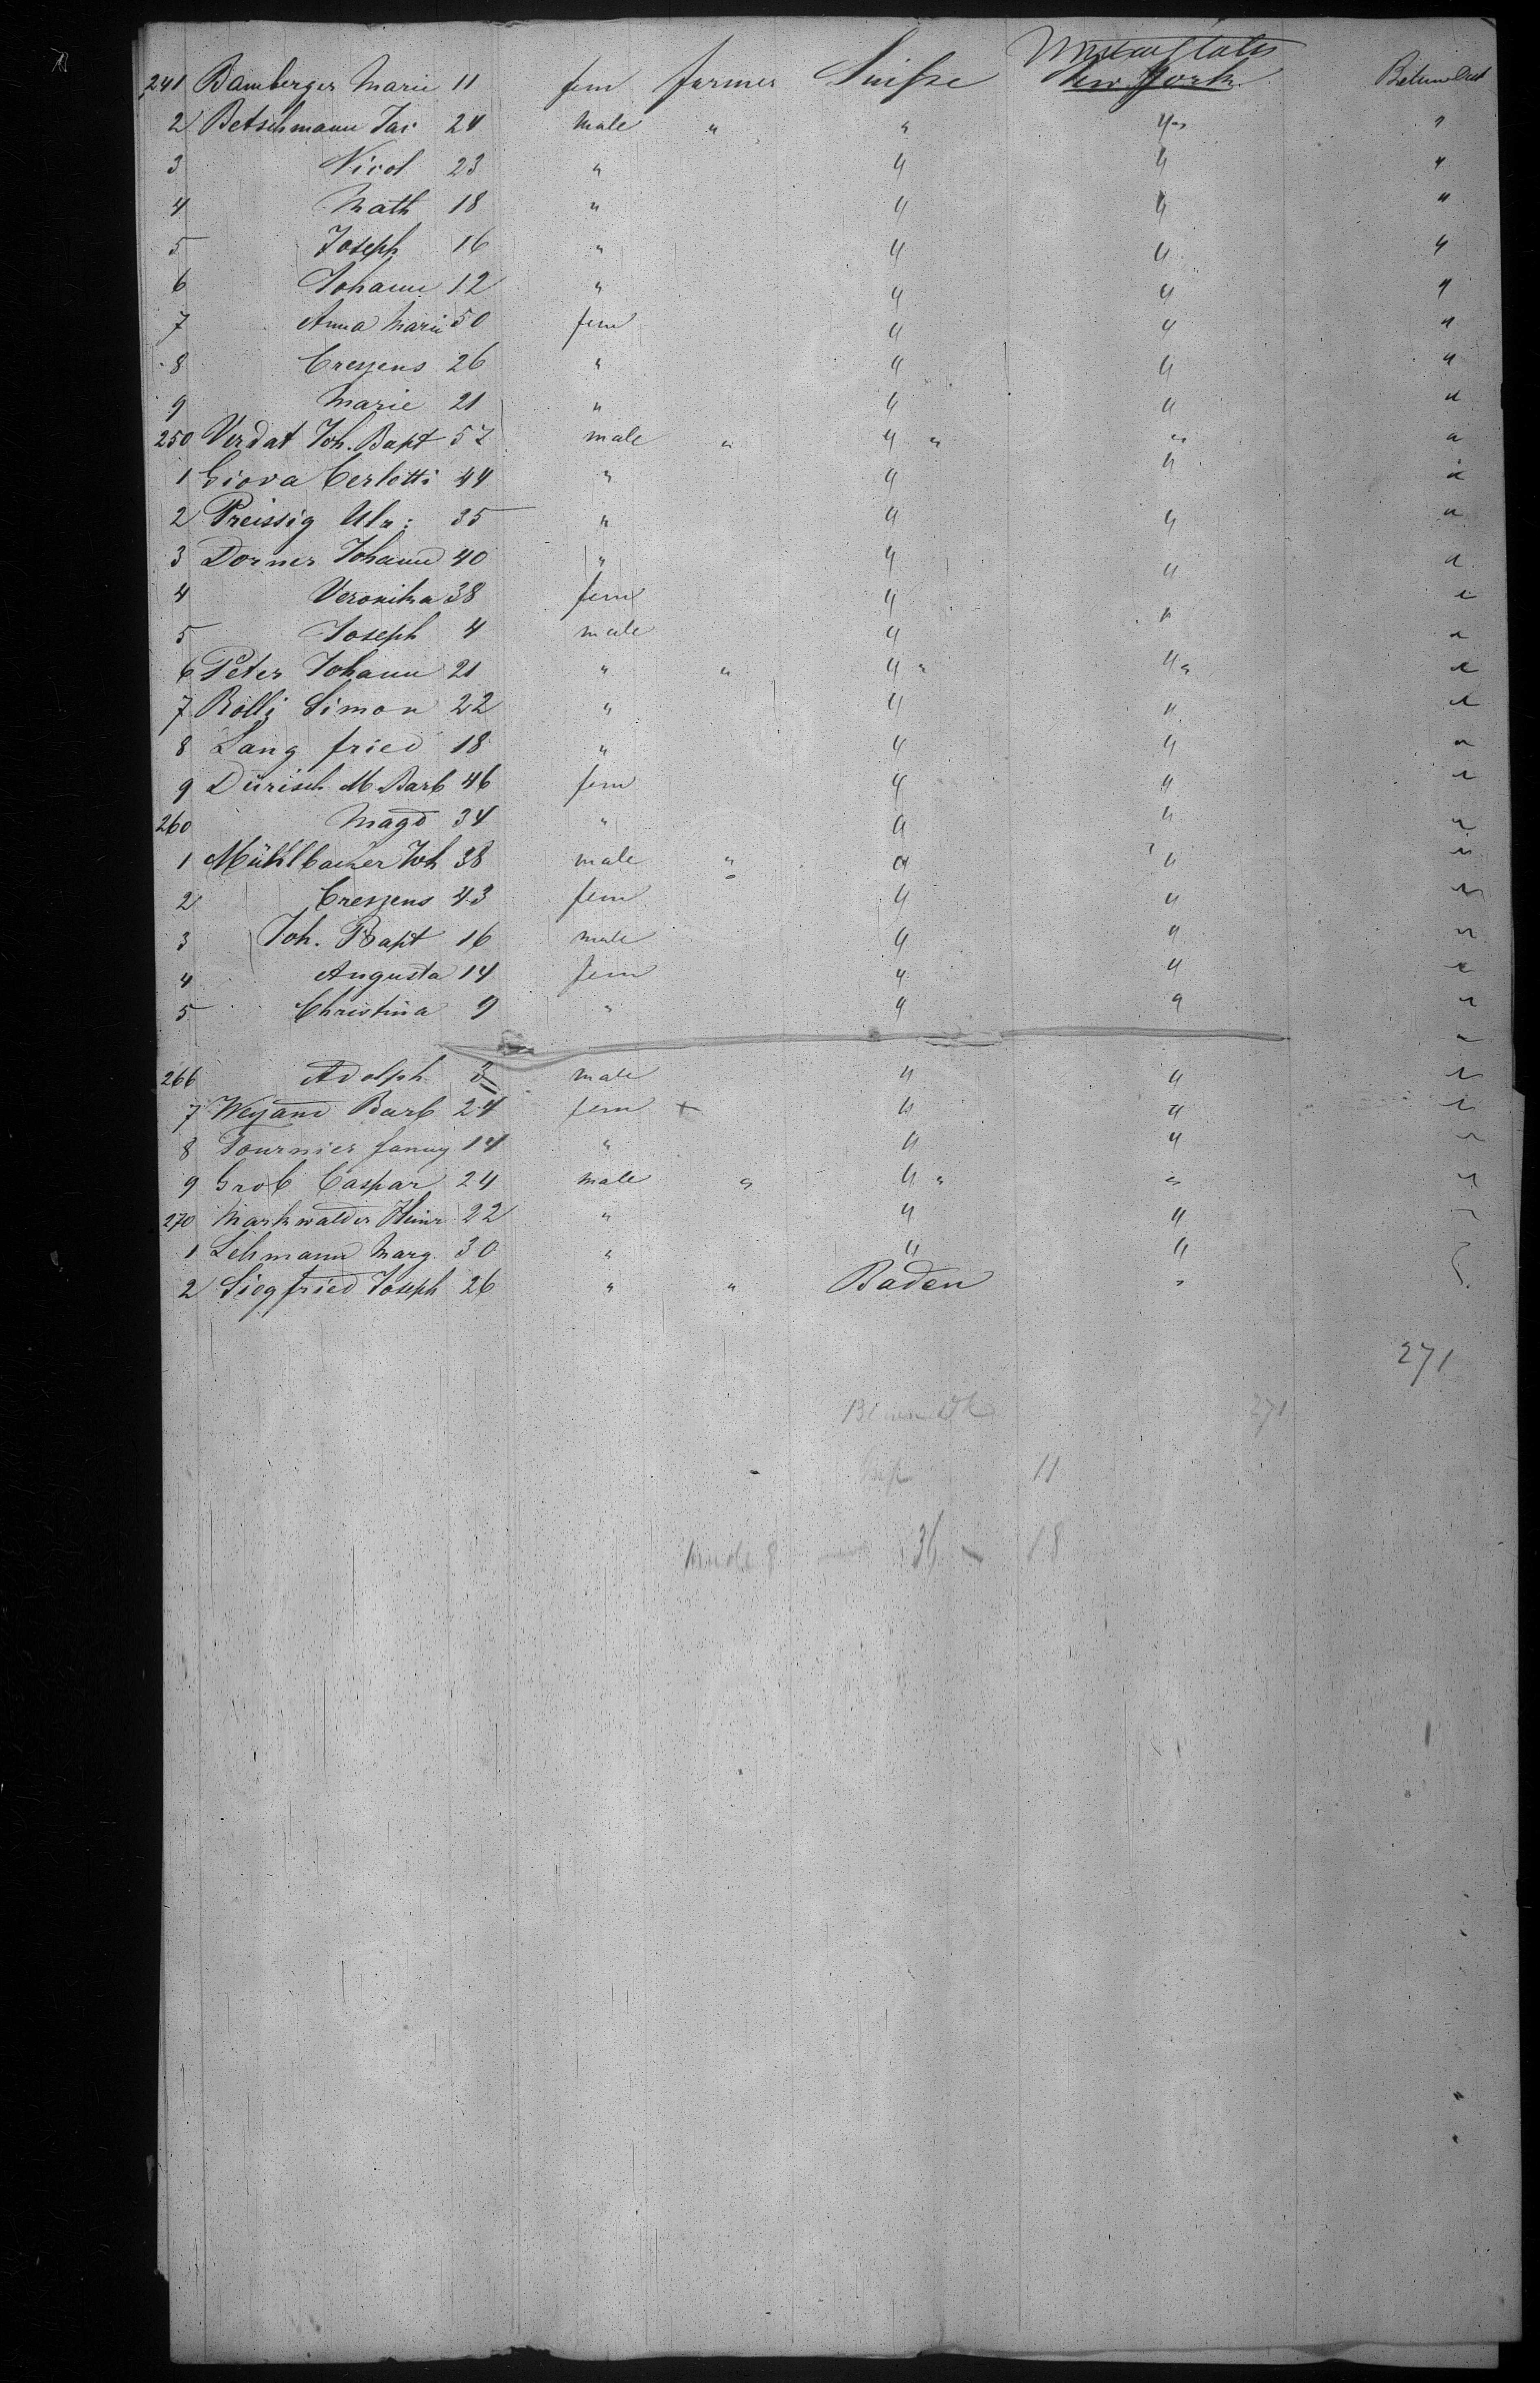 United States
241 Bamberger Marie 11 fem farmer Suisse New York Between Deck
2 Betschmann Jac 24 male " " " "
3 Nicol 23 " " " "
4 Math 18 " " " "
5 Joseph 16 " " " "
6 Johann 12 " " " "
7 Anna Marie 50 fem " " "
8 Creszens 26 " " " "
9 Marie 21 " " " "
250 Verdat Joh. Bapt 57 male " " " " "
1 Giova Cerlotti 44 " " " "
2 Preissig Ulr: 35 " " " "
3 Dorner Johann 40 " " " "
4 Veronika 38 fem " " "
5 Joseph 4 male " " "
6 Peter Johann 21 " " " " " "
7 Bölli Simon 22 " " " "
8 Lang fried 18 " " " "
9 Dürisch M Barb 46 fem " " "
260 Magd 34 " " " "
1 Mühlbacher Joh 38 male " " " "
2 Creszens 43 fem " " "
3 Joh. Bapt 16 male " " "
4 Augusta 14 fem " " "
5 Christina 9 " " " "
"
266 Adolph 3 male " " "
7 Weyand Barb 24 fem + " " "
8 Tournier fanny 14 " " " "
9 Grob Caspar 24 male " " " " "
270 Markwalder Heinr 22 " " " "
1 Lehmann Marg. 30 " " "
2 Siegfried Joseph 26 " " Baden "
271
271
11
36 18